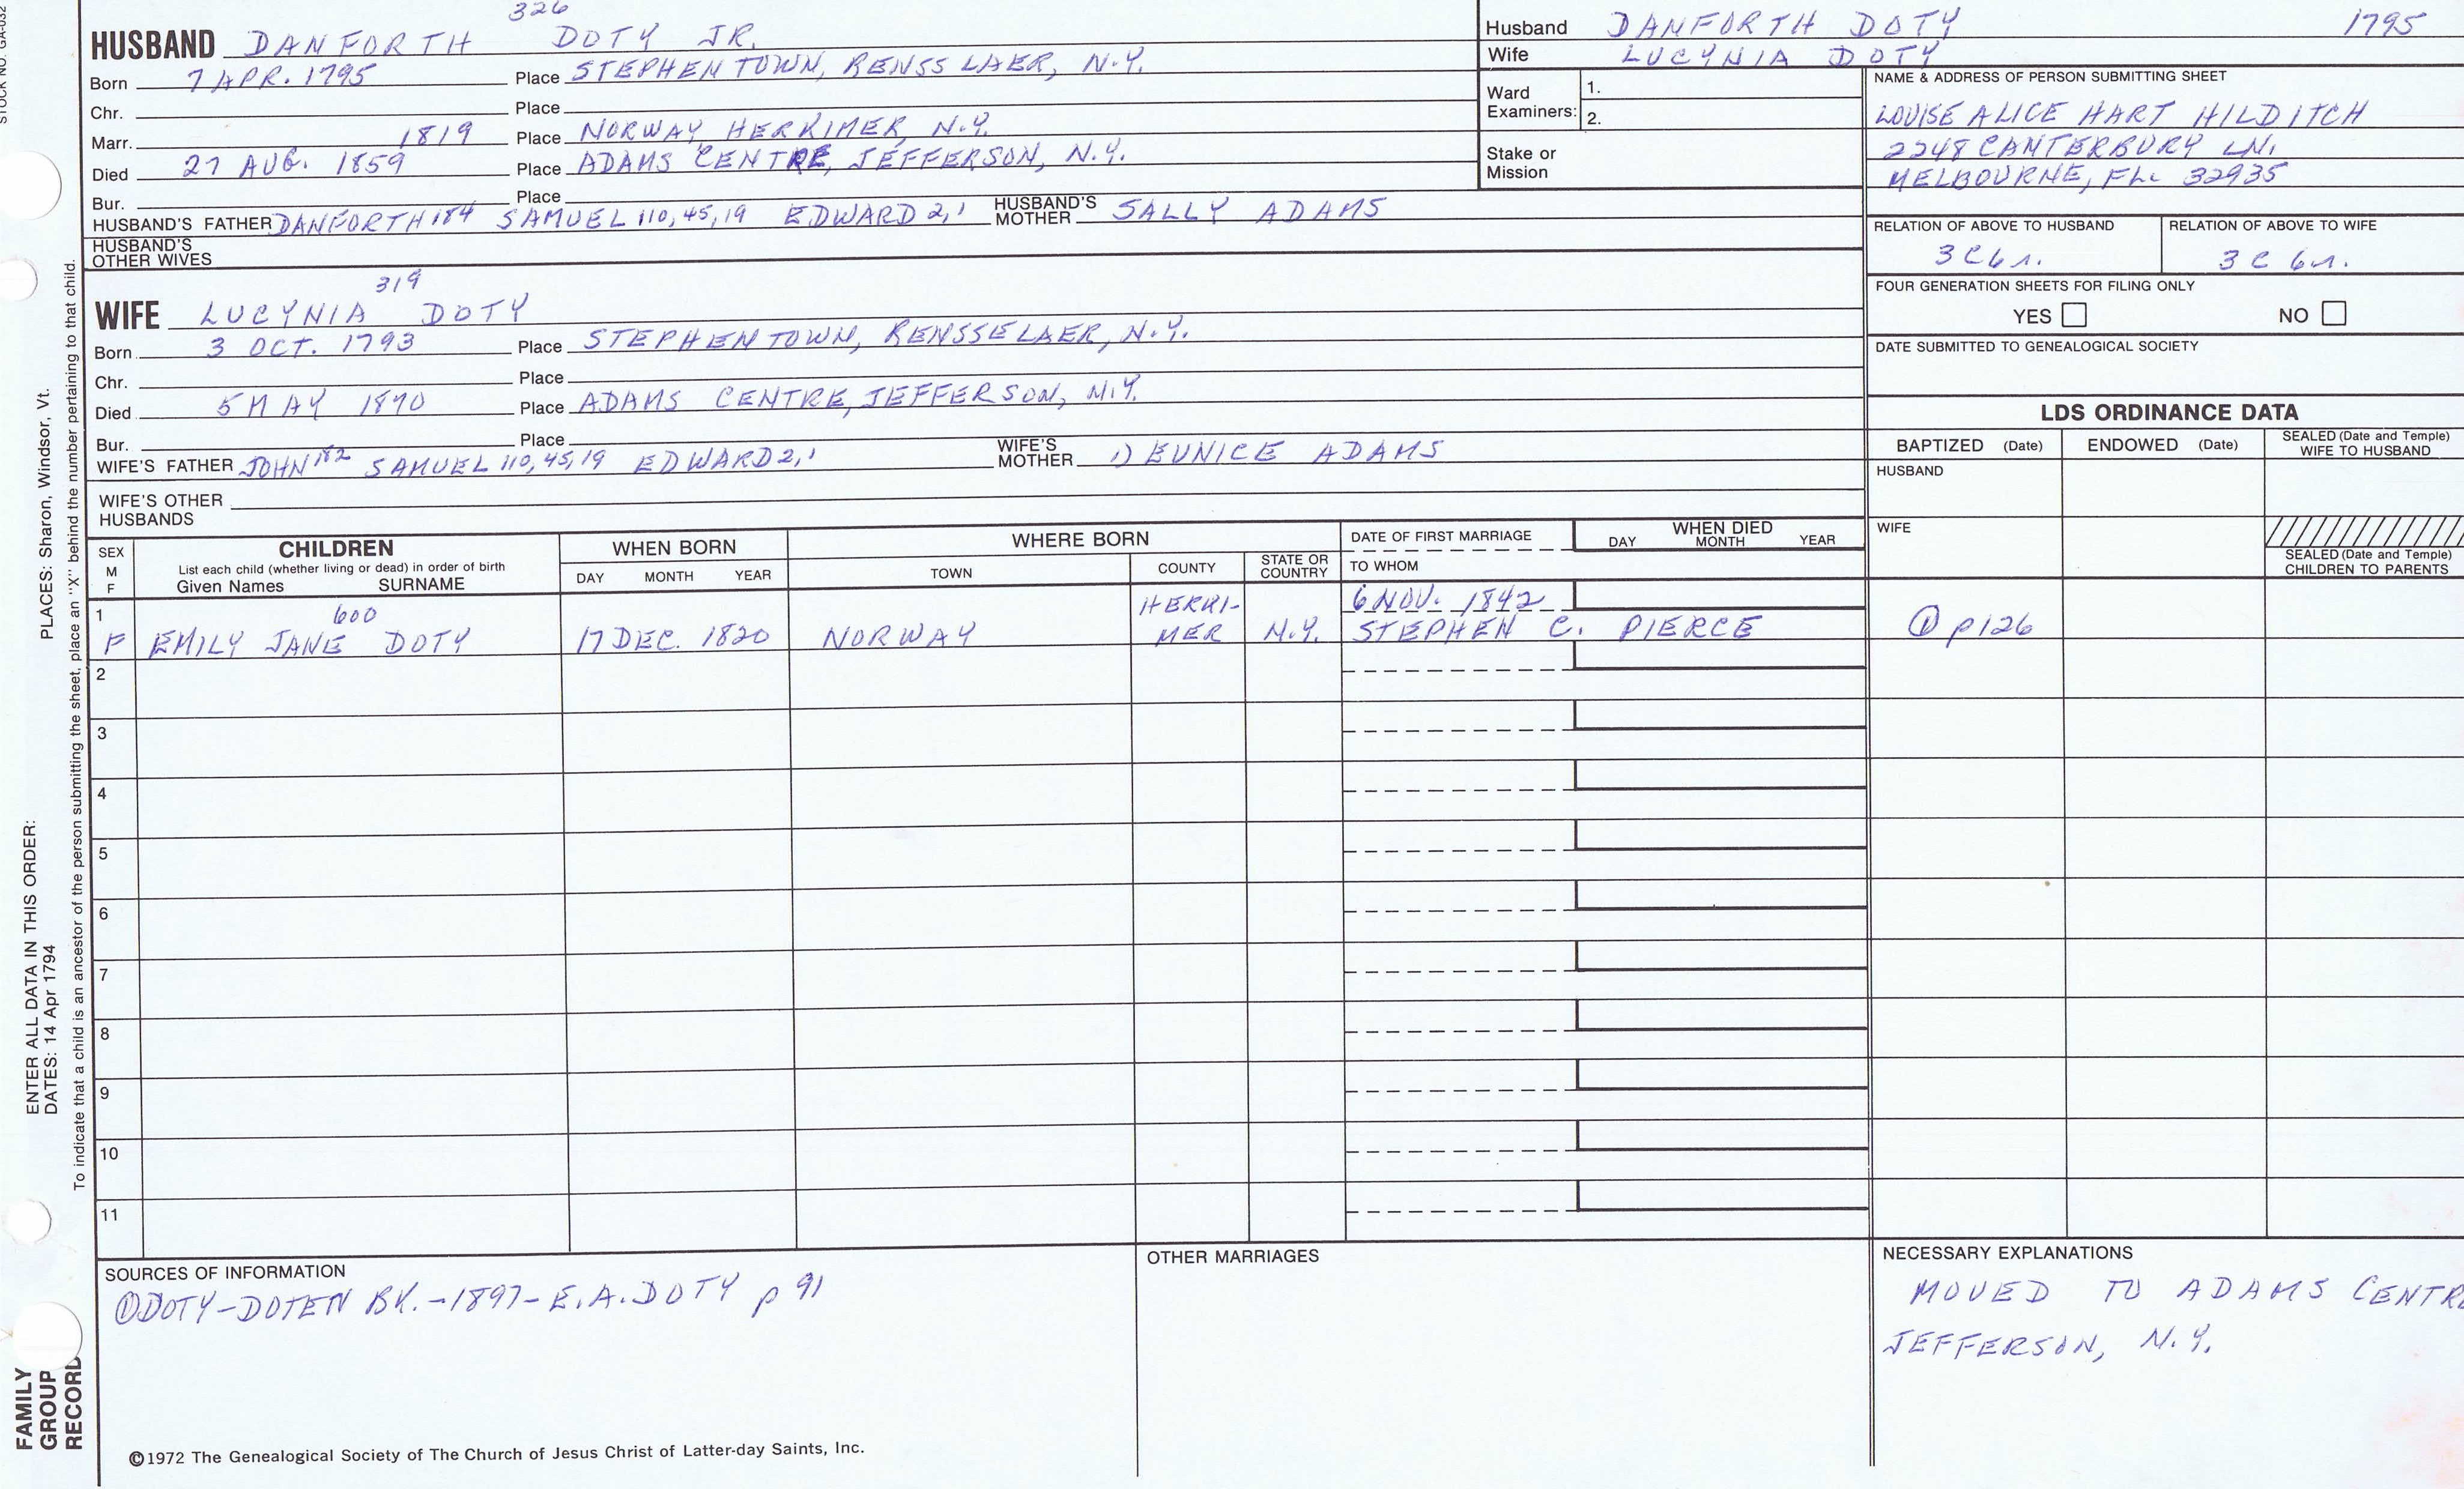 STOCK NO. GA-032
326
HUSBAND DANFORTH DOTY JR.
Born 7 APR. 1795 Place STEPHENTOWN, RENSSLAER, N.Y.
Chr. Place
Marr. 1819 Place NORWAY, HERKIMER, N.Y.
Died 27 AUG. 1859 Place ADAMS CENTRE, JEFFERSON, N.Y.
Bur. Place
HUSBAND'S FATHER DANFORTH 184 SAMUEL 110, 45, 19 EDWARD 2, 1 HUSBAND'S MOTHER SALLY ADAMS
HUSBAND'S OTHER WIVES
319
WIFE LUCYNIA DOTY
Born 3 OCT. 1793 Place STEPHENTOWN, RENSSELAER, N.Y.
Chr. Place
Died 5 MAY 1870 Place ADAMS CENTRE, JEFFERSON, N.Y.
Bur. Place
WIFE'S FATHER JOHN 182 SAMUEL 110, 45, 19 EDWARD 2, 1 WIFE'S MOTHER 1) EUNICE ADAMS
WIFE'S OTHER HUSBANDS
Husband DANFORTH DOTY 1795
Wife LUCYNIA DOTY
Ward Examiners: 1.
2.
Stake or Mission
NAME & ADDRESS OF PERSON SUBMITTING SHEET
LOUISE ALICE HART HILDITCH
2248 CANTERBURY LN.
MELBOURNE, FL. 32935
RELATION OF ABOVE TO HUSBAND RELATION OF ABOVE TO WIFE
3 C 6 r. 3 C 6 r.
FOUR GENERATION SHEETS FOR FILING ONLY
YES NO
DATE SUBMITTED TO GENEALOGICAL SOCIETY
LDS ORDINANCE DATA
BAPTIZED (Date) ENDOWED (Date) SEALED (Date and Temple) WIFE TO HUSBAND
HUSBAND
WIFE
SEALED (Date and Temple) CHILDREN TO PARENTS
SEX M F CHILDREN WHEN BORN WHERE BORN DATE OF FIRST MARRIAGE WHEN DIED
List each child (whether living or dead) in order of birth
Given Names SURNAME DAY MONTH YEAR TOWN COUNTY STATE OR COUNTRY TO WHOM DAY MONTH YEAR
1 600 HERKI- 6 NOV. 1842
F EMILY JANE DOTY 17 DEC. 1820 NORWAY MER N.Y. STEPHEN C. PIERCE ① p126
2
3
4
5
6
7
8
9
10
11
SOURCES OF INFORMATION
① DOTY-DOTEN BK.-1897-E.A. DOTY p 91
OTHER MARRIAGES
NECESSARY EXPLANATIONS
MOVED TO ADAMS CENTRE
JEFFERSON, N.Y.
©1972 The Genealogical Society of The Church of Jesus Christ of Latter-day Saints, Inc.
ENTER ALL DATA IN THIS ORDER:
DATES: 14 Apr 1794 PLACES: Sharon, Windsor, Vt.
To indicate that a child is an ancestor of the person submitting the sheet, place an "X" behind the number pertaining to that child.
FAMILY
GROUP
RECORD